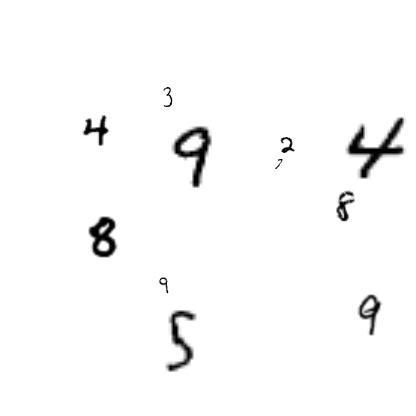 3
4 9 2 4
7
8
8
9
9
5